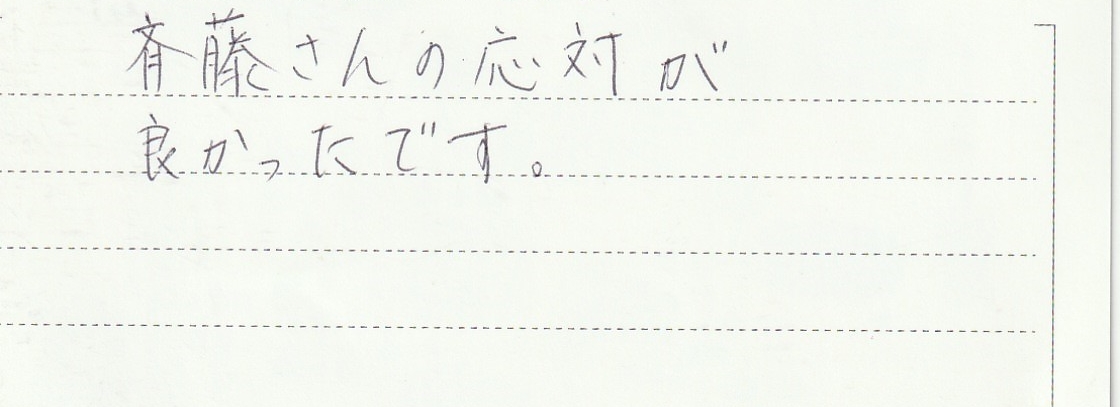 斉藤さんの応対が
良かったです。